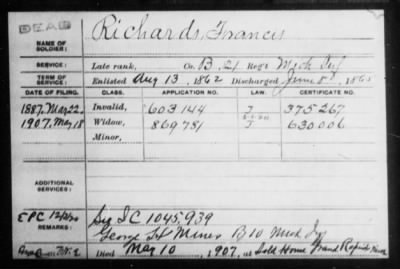 DEAD
NAME OF SOLDIER: Richards, Francis
SERVICE: Late rank, Co. B, 21 Reg't Mich Inf
TERM OF SERVICE: Enlisted Aug 13, 1862 Discharged June 8, 1865
DATE OF FILING. CLASS. APPLICATION NO. LAW. CERTIFICATE NO.
1887, Mar 22 Invalid, 603144 375267
1907, May 18 Widow, 869781 630006
Minor,
ADDITIONAL SERVICES:
EPC
REMARKS: SC 1045,939
George Mines B 10 Mich Inf
Died May 10, 1907, at Sold Home Grand Rapids Mich